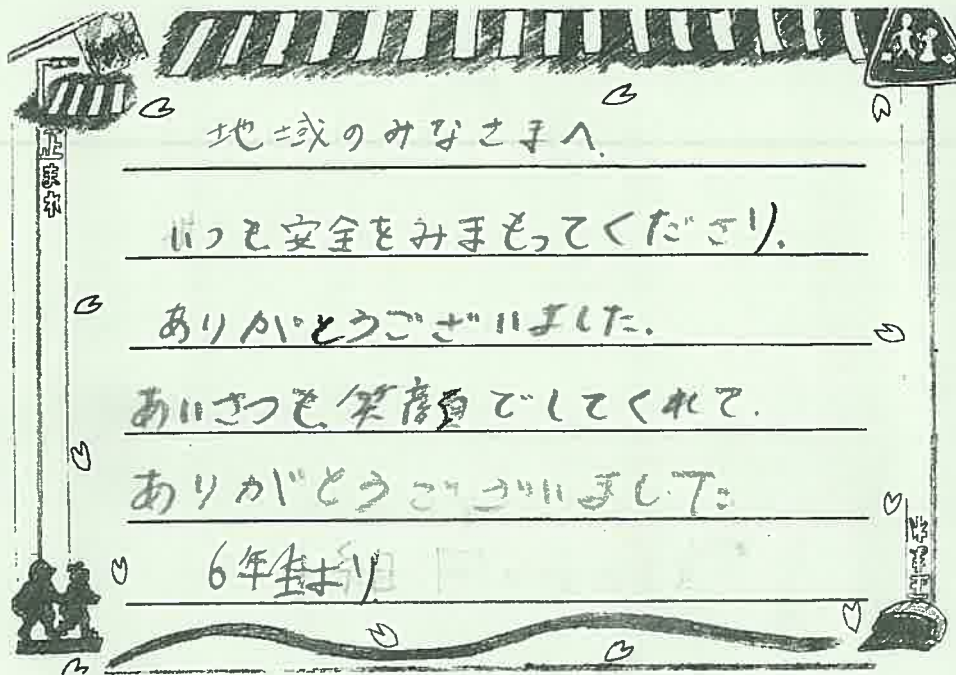 止まれ
地域のみなさまへ
いつも安全をみまもってくださり、
ありがとうございました。
あいさつも、笑顔でしてくれて、
ありがとうございました
6年生より